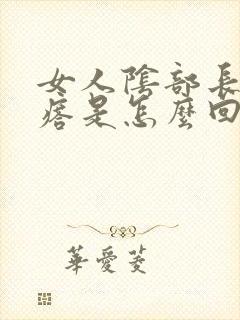 女人陰部長
痞是怎麼回
華愛菱